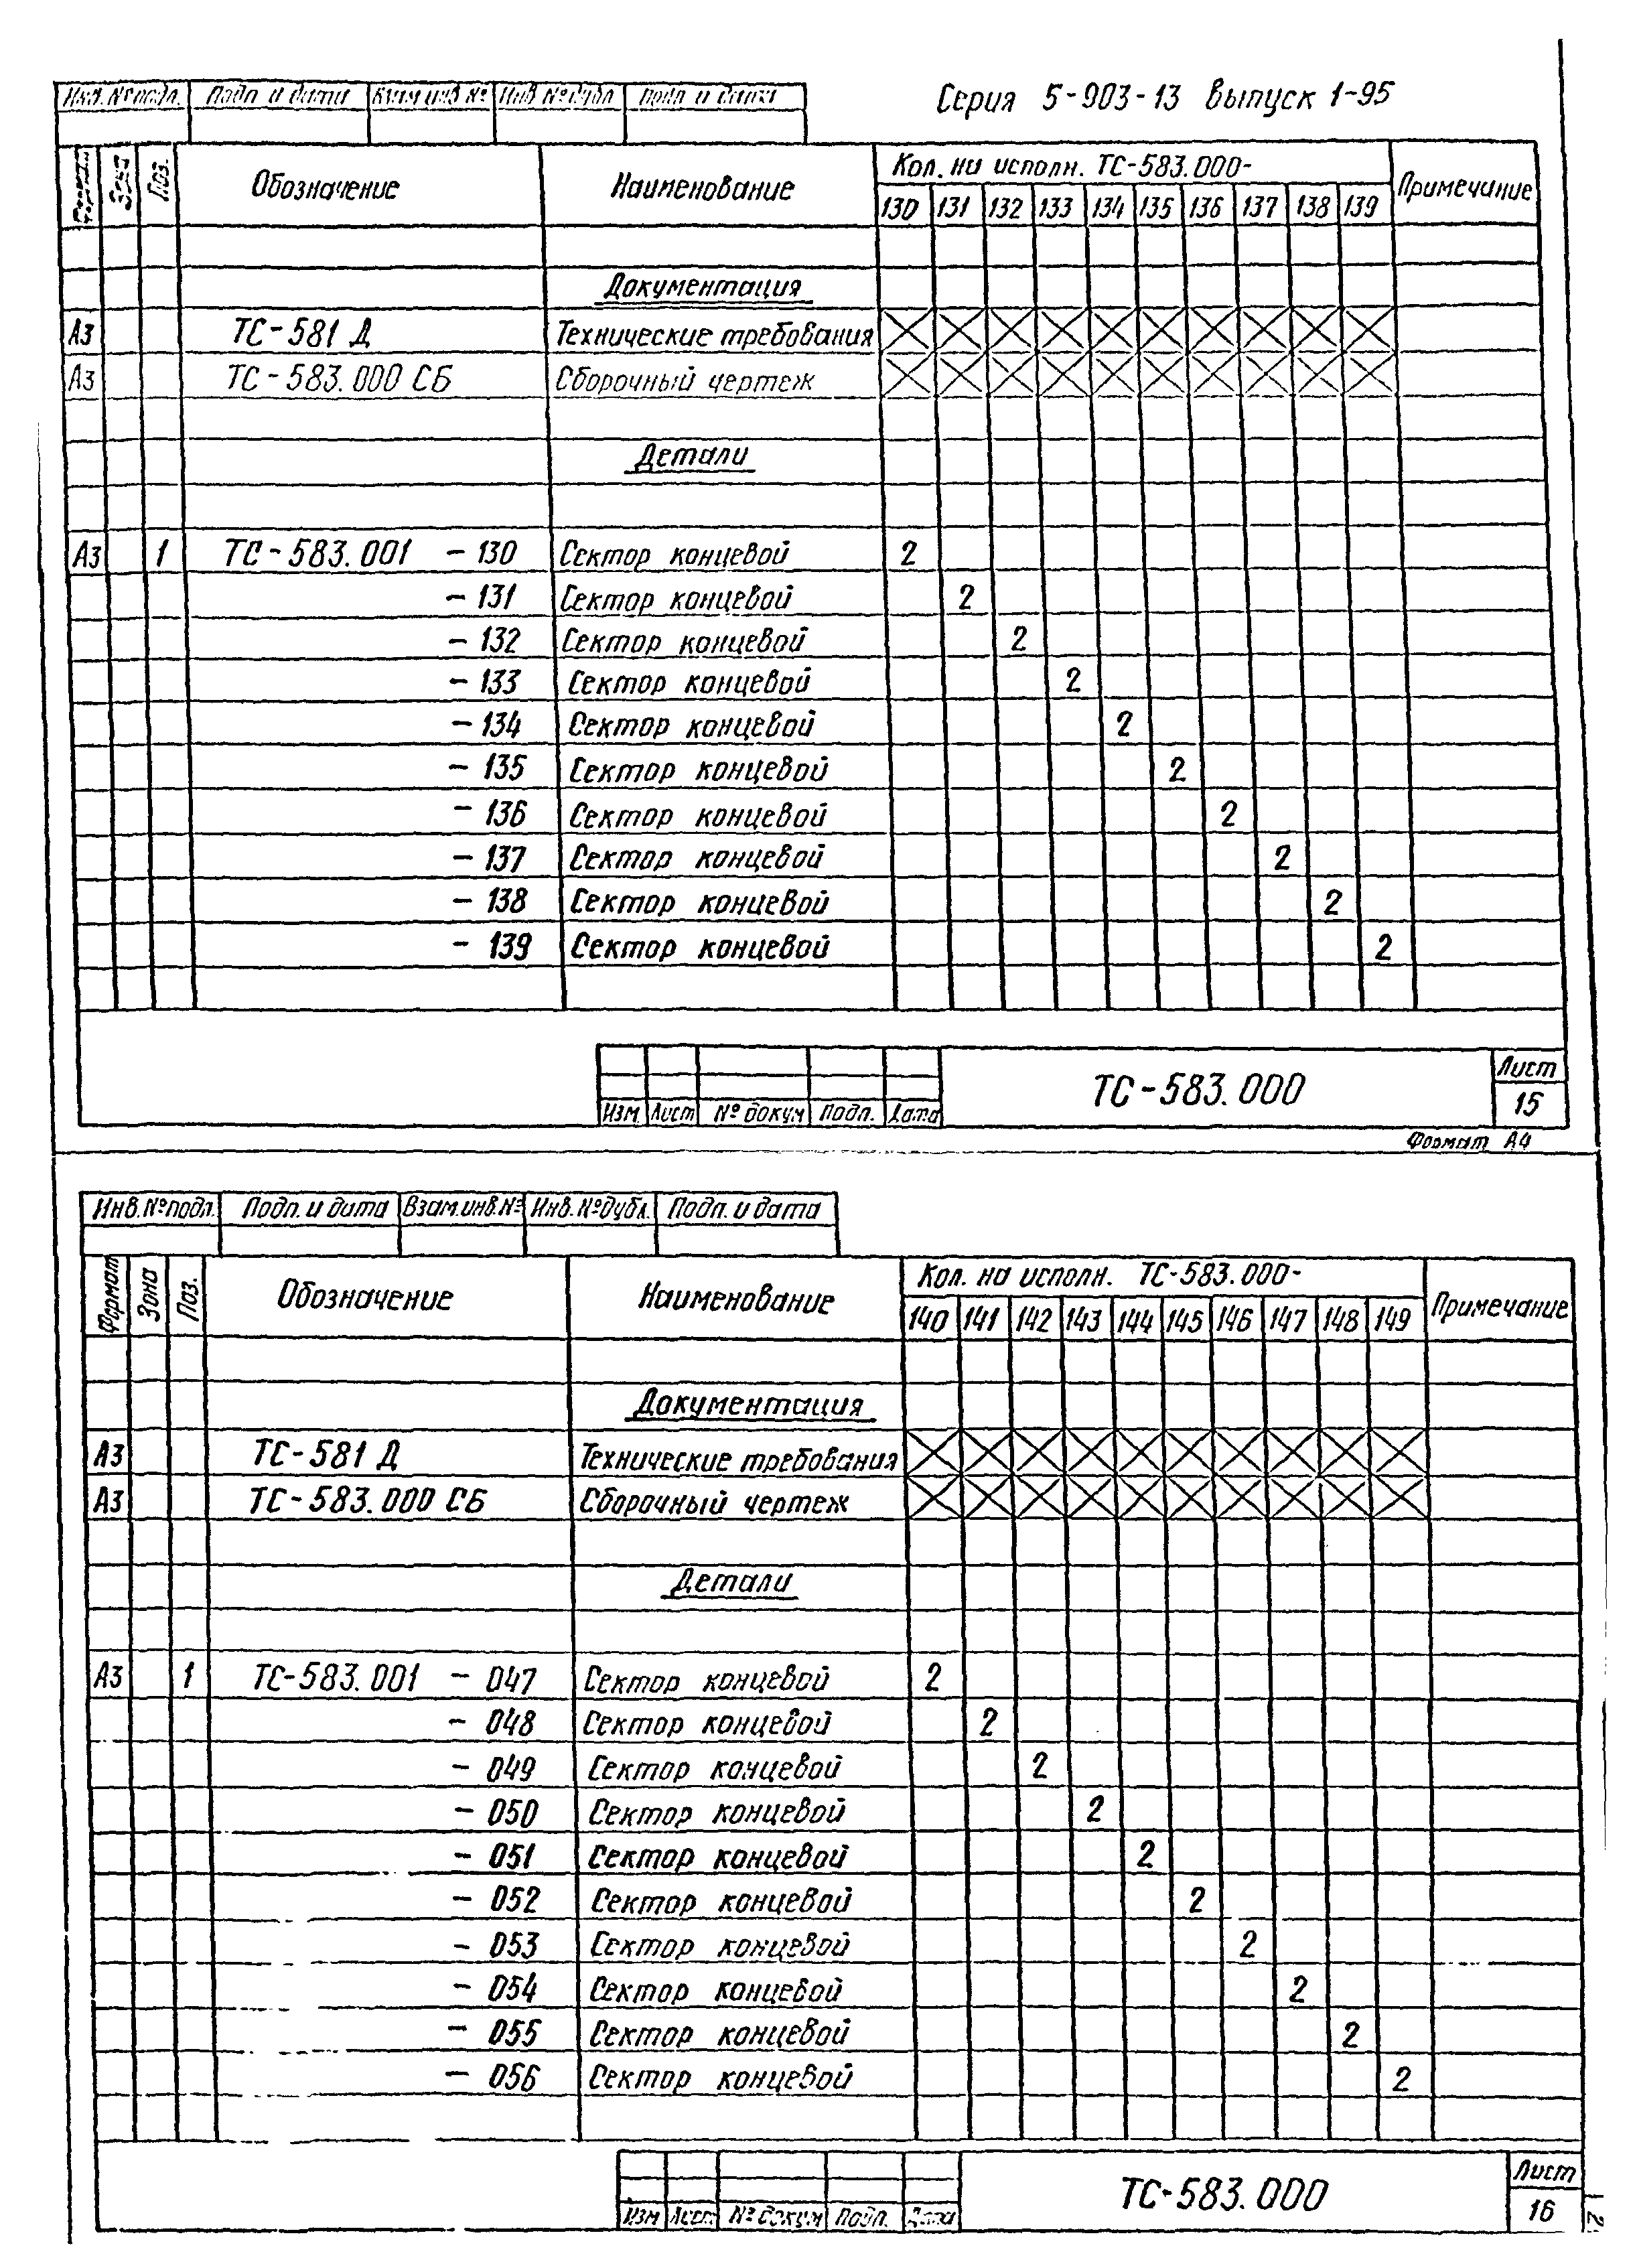 Серия 5-903-13 выпуск 1-95
Инв. № подл. Подп. и дата Взам инв № Инв № дубл Подп. и дата
Формат Зона Поз. Обозначение Наименование Кол. на исполн. ТС-583.000- Примечание
130 131 132 133 134 135 136 137 138 139
Документация
А3 ТС-581 Д Технические требования
А3 ТС-583.000 СБ Сборочный чертеж
Детали
А3 1 ТС-583.001 -130 Сектор концевой 2
-131 Сектор концевой 2
-132 Сектор концевой 2
-133 Сектор концевой 2
-134 Сектор концевой 2
-135 Сектор концевой 2
-136 Сектор концевой 2
-137 Сектор концевой 2
-138 Сектор концевой 2
-139 Сектор концевой 2
Изм Лист № докум Подп. Дата ТС-583.000 Лист
15
Формат А4
Инв. № подл. Подп. и дата Взам. инв. № Инв. № дубл. Подп. и дата
Формат Зона Поз. Обозначение Наименование Кол. на исполн. ТС-583.000- Примечание
140 141 142 143 144 145 146 147 148 149
Документация
А3 ТС-581 Д Технические требования
А3 ТС-583.000 СБ Сборочный чертеж
Детали
А3 1 ТС-583.001 -047 Сектор концевой 2
-048 Сектор концевой 2
-049 Сектор концевой 2
-050 Сектор концевой 2
-051 Сектор концевой 2
-052 Сектор концевой 2
-053 Сектор концевой 2
-054 Сектор концевой 2
-055 Сектор концевой 2
-056 Сектор концевой 2
Изм Лист № докум Подп. Дата ТС-583.000 Лист
16